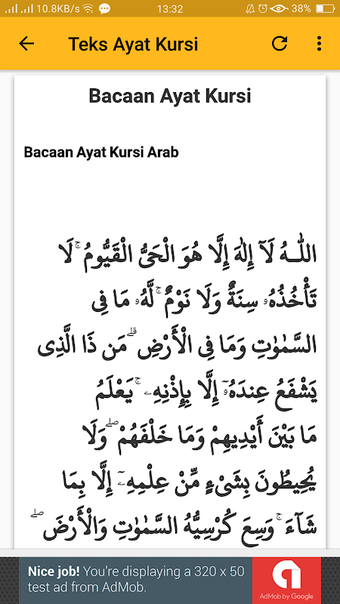 10.8KB/s 13:32 38%
Teks Ayat Kursi
Bacaan Ayat Kursi
Bacaan Ayat Kursi Arab
اللّٰهُ لَآ إِلٰهَ إِلَّا هُوَ الْحَيُّ الْقَيُّومُ ۚ لَا
تَأْخُذُهُۥ سِنَةٌ وَلَا نَوْمٌ ۚ لَّهُۥ مَا فِى
السَّمٰوٰتِ وَمَا فِى الْأَرْضِ ۗ مَن ذَا الَّذِى
يَشْفَعُ عِندَهُۥٓ إِلَّا بِإِذْنِهِۦ ۚ يَعْلَمُ
مَا بَيْنَ أَيْدِيهِمْ وَمَا خَلْفَهُمْ ۖ وَلَا
يُحِيطُونَ بِشَىْءٍ مِّنْ عِلْمِهِۦٓ إِلَّا بِمَا
شَآءَ ۚ وَسِعَ كُرْسِيُّهُ السَّمٰوٰتِ وَالْأَرْضَ ۖ
Nice job! You're displaying a 320 x 50
test ad from AdMob.
AdMob by Google